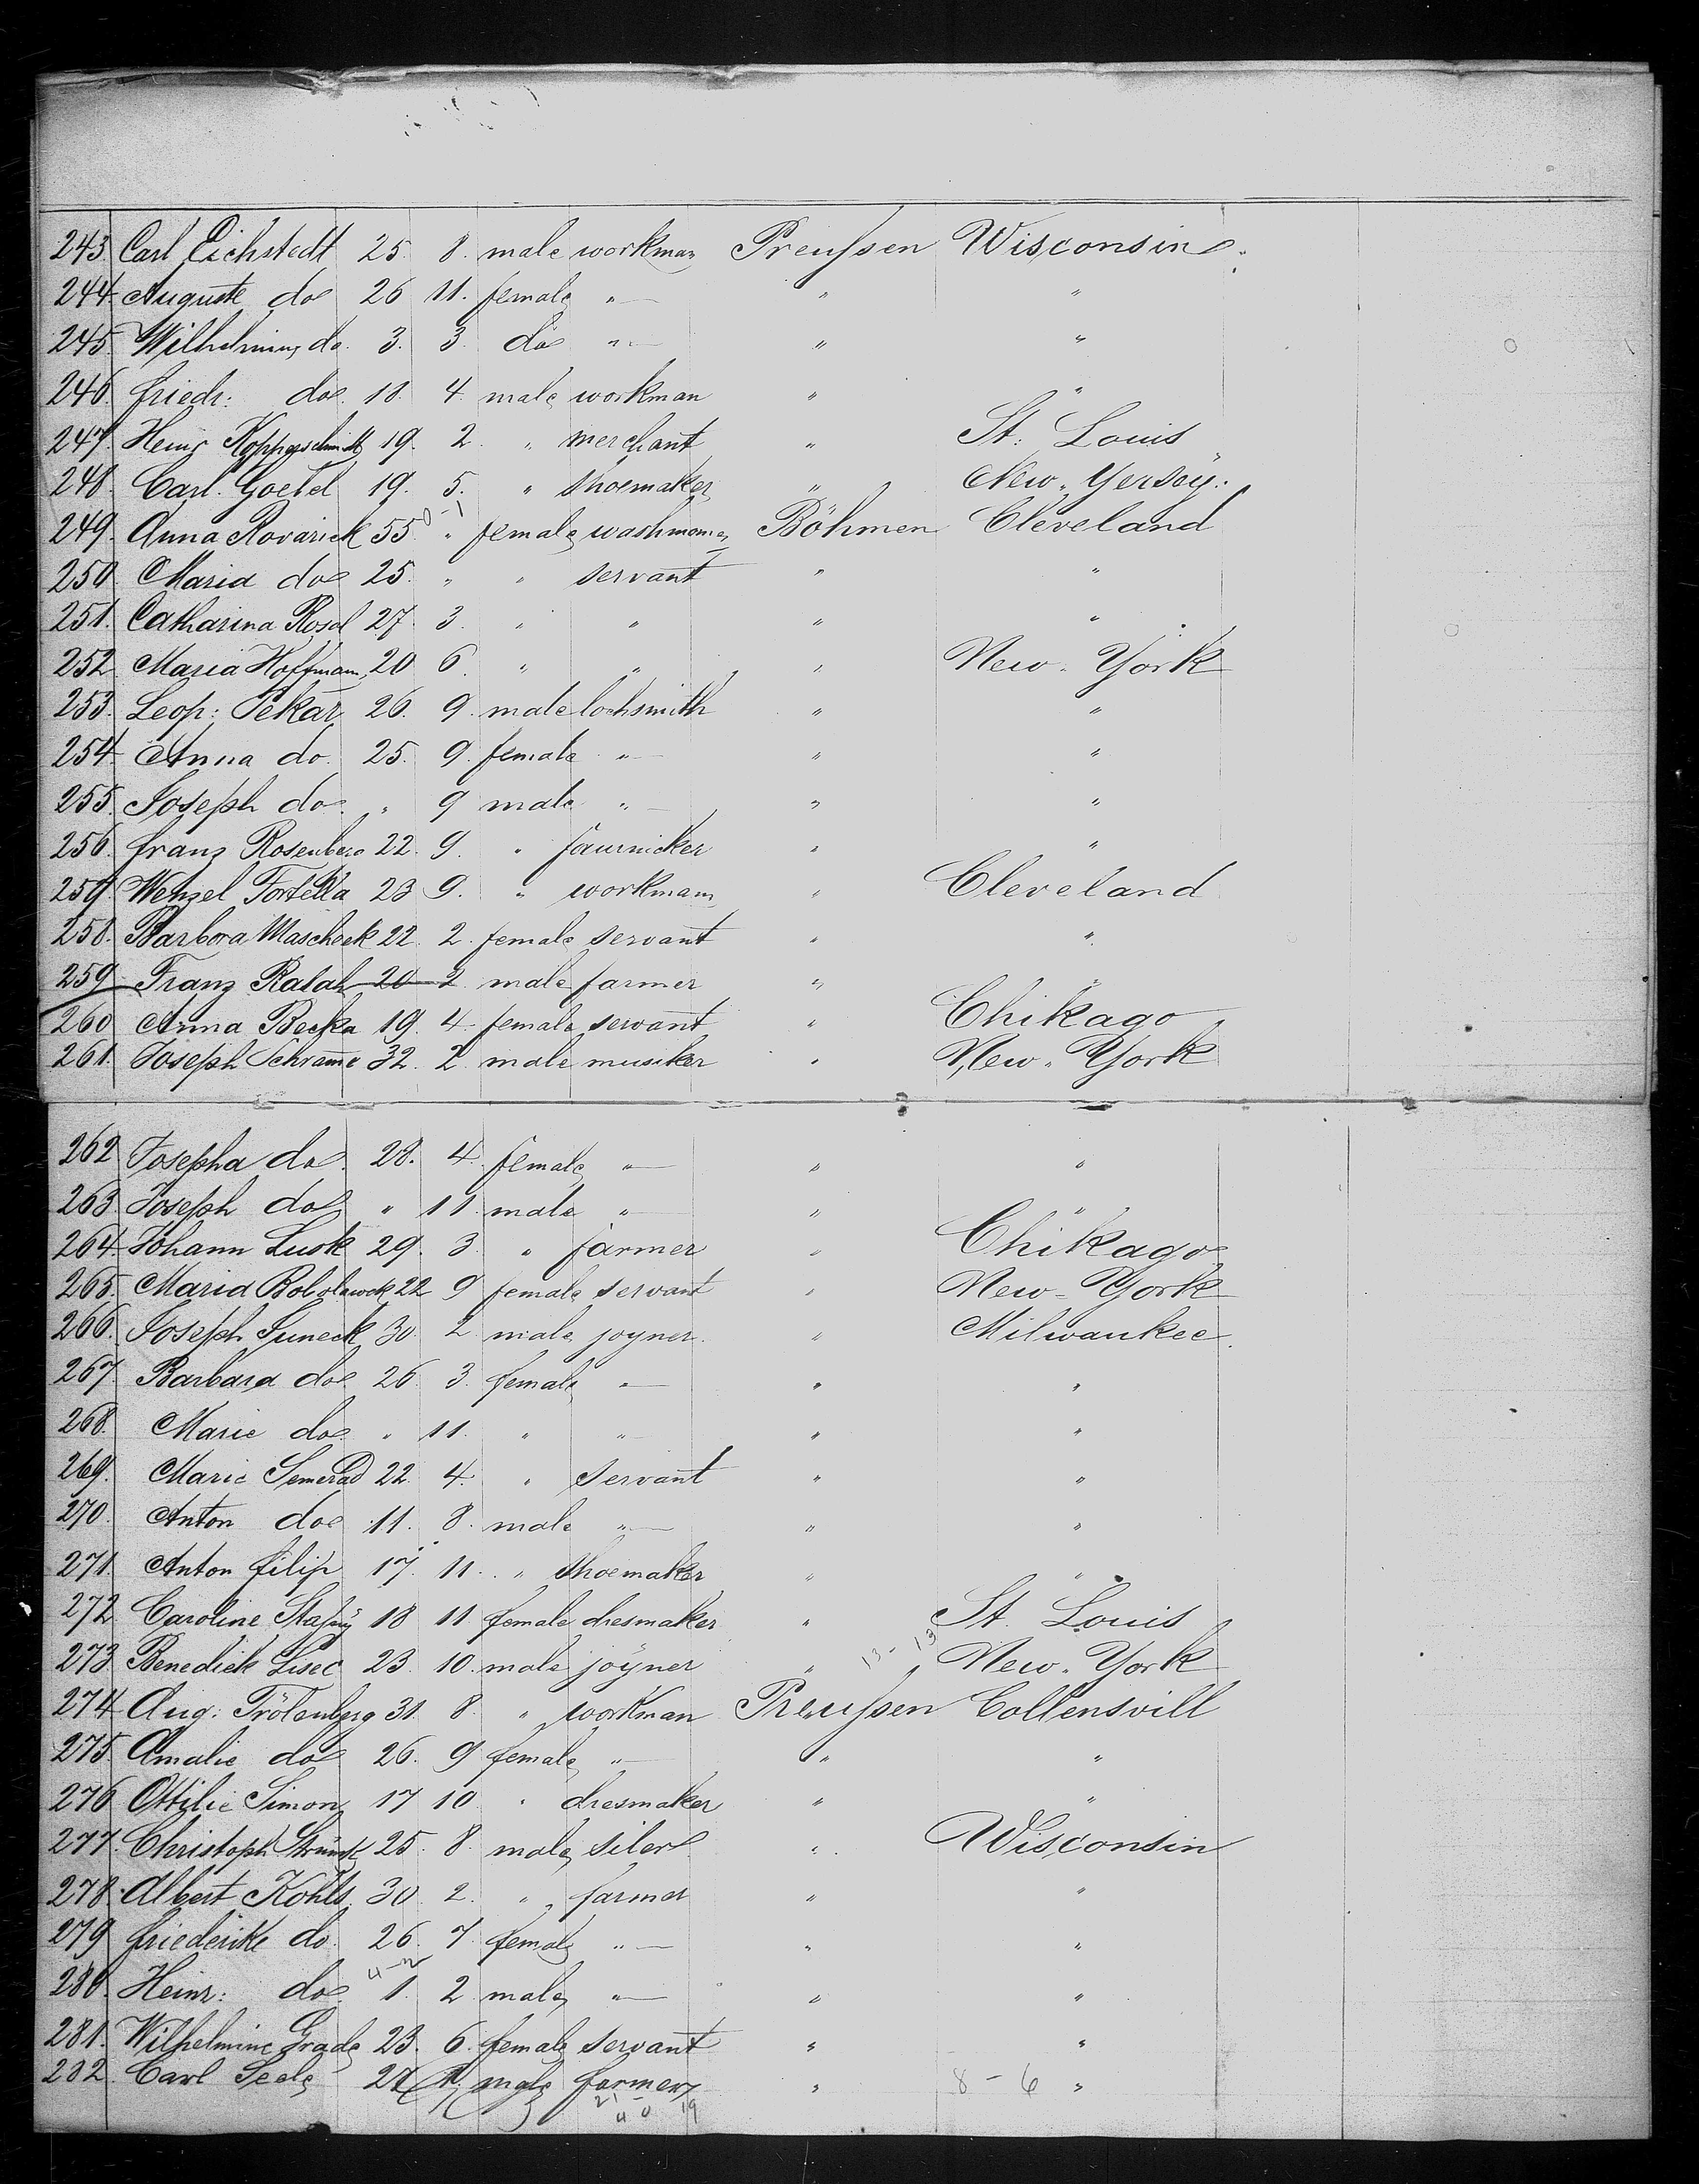 243. Carl Eichstedt 25. 8. male workman Preußen Wisconsin.
244. Auguste do 26 11. female " — " "
245. Wilhelmine do. 3. 3. do " — " "
246. friedr: do. 11. 4 male workman " "
247. Heinr Koppeschmidt 19. 2. " merchant " St: Louis
248. Carl. Goetel 19. 5. " shoemaker " New-Yersey:
249. Anna Kovarick 55 " female Böhmen Cleveland
250. Maria do 25. " " servant " "
251. Catharina Rosol 27. 3. " " " "
252. Maria Hoffmann 20 6. " " " New-York
253. Leop: Pekar 26. 9. male lochsmith " "
254. Anna do. 25. 9. female " — " "
255. Joseph do. " 9 male " — " "
256. franz Rosenberg 22. 9. " " "
257. Wenzel 23 9. " workmann " Cleveland
258. Barbora Mascheck 22. 2. female servant " "
259 Franz Ralah 20 2 male farmer " "
260 Anna Becka 19. 4. female servant " Chikago
261. Joseph Schrame 32. 2. male musiker " New-York
262. Josepha do. 28. 4. female " — " "
263. Joseph do " 11. male " — " "
264. Johann Lusk 29. 3. " farmer " Chikago
265. Maria 22 9 female servant " New-York
266. Joseph Suneck 30. 2. male joyner. " Milwaukee.
267. Barbara do. 26 3. female " — " "
268. Marie do. " 11. " " — " "
269. Marie Semerad 22. 4. " servant " "
270. Anton do 11. 8. male " — " "
271. Anton filip 17. 11. " shoemaker " "
272. Caroline 18 11. female dresmaker " St. Louis
273 Benedick Lisec 23. 10. male joyner " 13-13 New-York
274 Aug: Trötenberg 31. 8. " workman Preußen Collensvill
275 Amalie do 26. 9 female " — " "
276 Ottilie Simon 17 10 " dresmaker " "
277. Christoph 25. 8. male siler " Wisconsin
278. Albert Kohls. 30. 2. " farmer " "
279 friederike do. 26. 7. female " — " "
280. Heinr: do. 1. 2 male " — " "
281. Wilhelmine Grade 23. 6. female servant " "
282. Carl Seele male farmer " 8-6 "